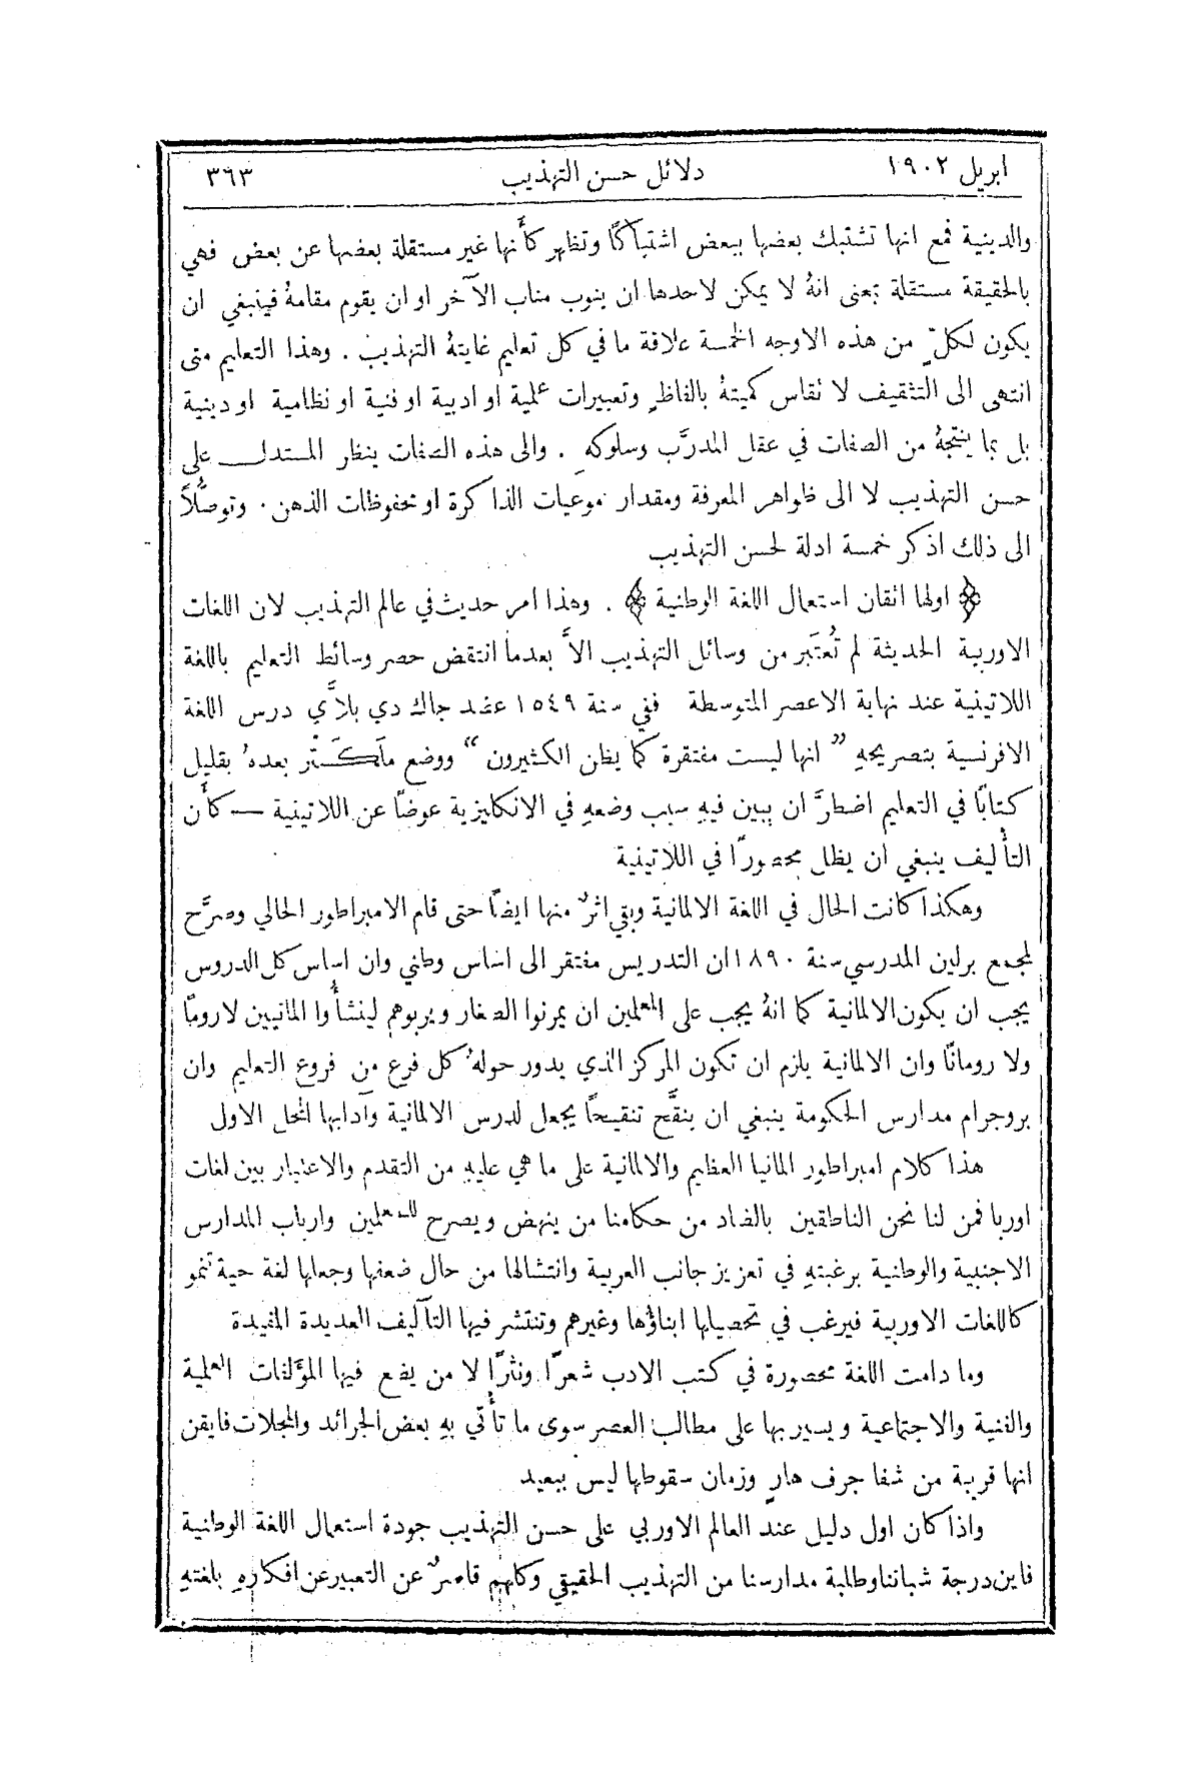 ابريل ١٩٠٢ دلائل حسن التهذيب ٣٦٣
والدينية فمع انها تشتبك بعضها ببعض اشتباكًا وتظهر كأنها غير مستقلة بعضها عن بعض فهي
بالحقيقة مستقلة بمعنى انهُ لا يمكن لاحدها ان ينوب مناب الآخر او ان يقوم مقامهُ فينبغي ان
يكون لكلٍّ من هذه الاوجه الخمسة علاقة ما في كل تعليم غايتهُ التهذيب . وهذا التعليم متى
انتهى الى التثقيف لا نقاس كميتهُ بالفاظٍ وتعبيرات علمية او ادبية او فنية او نظامية او دينية
بل بما ينتجهُ من الصفات في عقل المدرَّب وسلوكهِ . والى هذه الصفات ينظر المستدل على
حسن التهذيب لا الى ظواهر المعرفة ومقدار موعيات الذاكرة او محفوظات الذهن . وتوصُّلاً
الى ذلك اذكر خمسة ادلة لحسن التهذيب
﴿ اولها اتقان استعمال اللغة الوطنية ﴾ . وهذا امر حديث في عالم التهذيب لان اللغات
الاوربية الحديثة لم تُعتَبر من وسائل التهذيب الاَّ بعدما انتقض حصر وسائط التعليم باللغة
اللاتينية عند نهاية الاعصر المتوسطة ففي سنة ١٥٤٩ عضد جاك دي بلاَّي درس اللغة
الافرنسية بتصريحهِ ” انها ليست مفتقرة كما يظن الكثيرون “ ووضع ملَكَستْر بعدهُ بقليل
كتابًا في التعليم اضطرَّ ان يبين فيهِ سبب وضعهِ في الانكليزية عوضًا عن اللاتينية — كأن
التأليف ينبغي ان يظل محصورًا في اللاتينية
وهكذا كانت الحال في اللغة الالمانية وبقي اثرٌ منها ايضًا حتى قام الامبراطور الحالي وصرَّح
لمجمع برلين المدرسي سنة ١٨٩٠ ان التدريس مفتقر الى اساس وطني وان اساس كل الدروس
يجب ان يكون الالمانية كما انهُ يجب على المعلمين ان يمرنوا الصغار ويربوهم لينشأُوا المانيين لا رومًا
ولا رومانًا وان الالمانية يلزم ان تكون المركز الذي يدور حولهُ كل فرع من فروع التعليم وان
بروجرام مدارس الحكومة ينبغي ان ينقَّح تنقيحًا يجعل لدرس الالمانية وآدابها المحل الاول
هذا كلام امبراطور المانيا العظيم والالمانية على ما هي عليهِ من التقدم والاعتبار بين لغات
اوربا فمن لنا نحن الناطقين بالضاد من حكامنا من ينهض ويصرح للمعلمين وارباب المدارس
الاجنبية والوطنية برغبتهِ في تعزيز جانب العربية وانتشالها من حال ضعفها وجعلها لغة حية تنمو
كاللغات الاوربية فيرغب في تحصيلها ابناؤُها وغيرهم وتنتشر فيها التآليف العديدة المفيدة
وما دامت اللغة محصورة في كتب الادب شعرًا ونثرًا لا من يضع فيها المؤَلفات العلمية
والفنية والاجتماعية ويسير بها على مطالب العصر سوى ما تأْتي بهِ بعض الجرائد والمجلات فايقن
انها قريبة من شفا جرف هارٍ وزمان سقوطها ليس ببعيد
واذا كان اول دليل عند العالم الاوربي على حسن التهذيب جودة استعمال اللغة الوطنية
فاين درجة شباننا وطلبة مدارسنا من التهذيب الحقيقي وكلهم قاصرٌ عن التعبير عن افكارهِ بلغتهِ